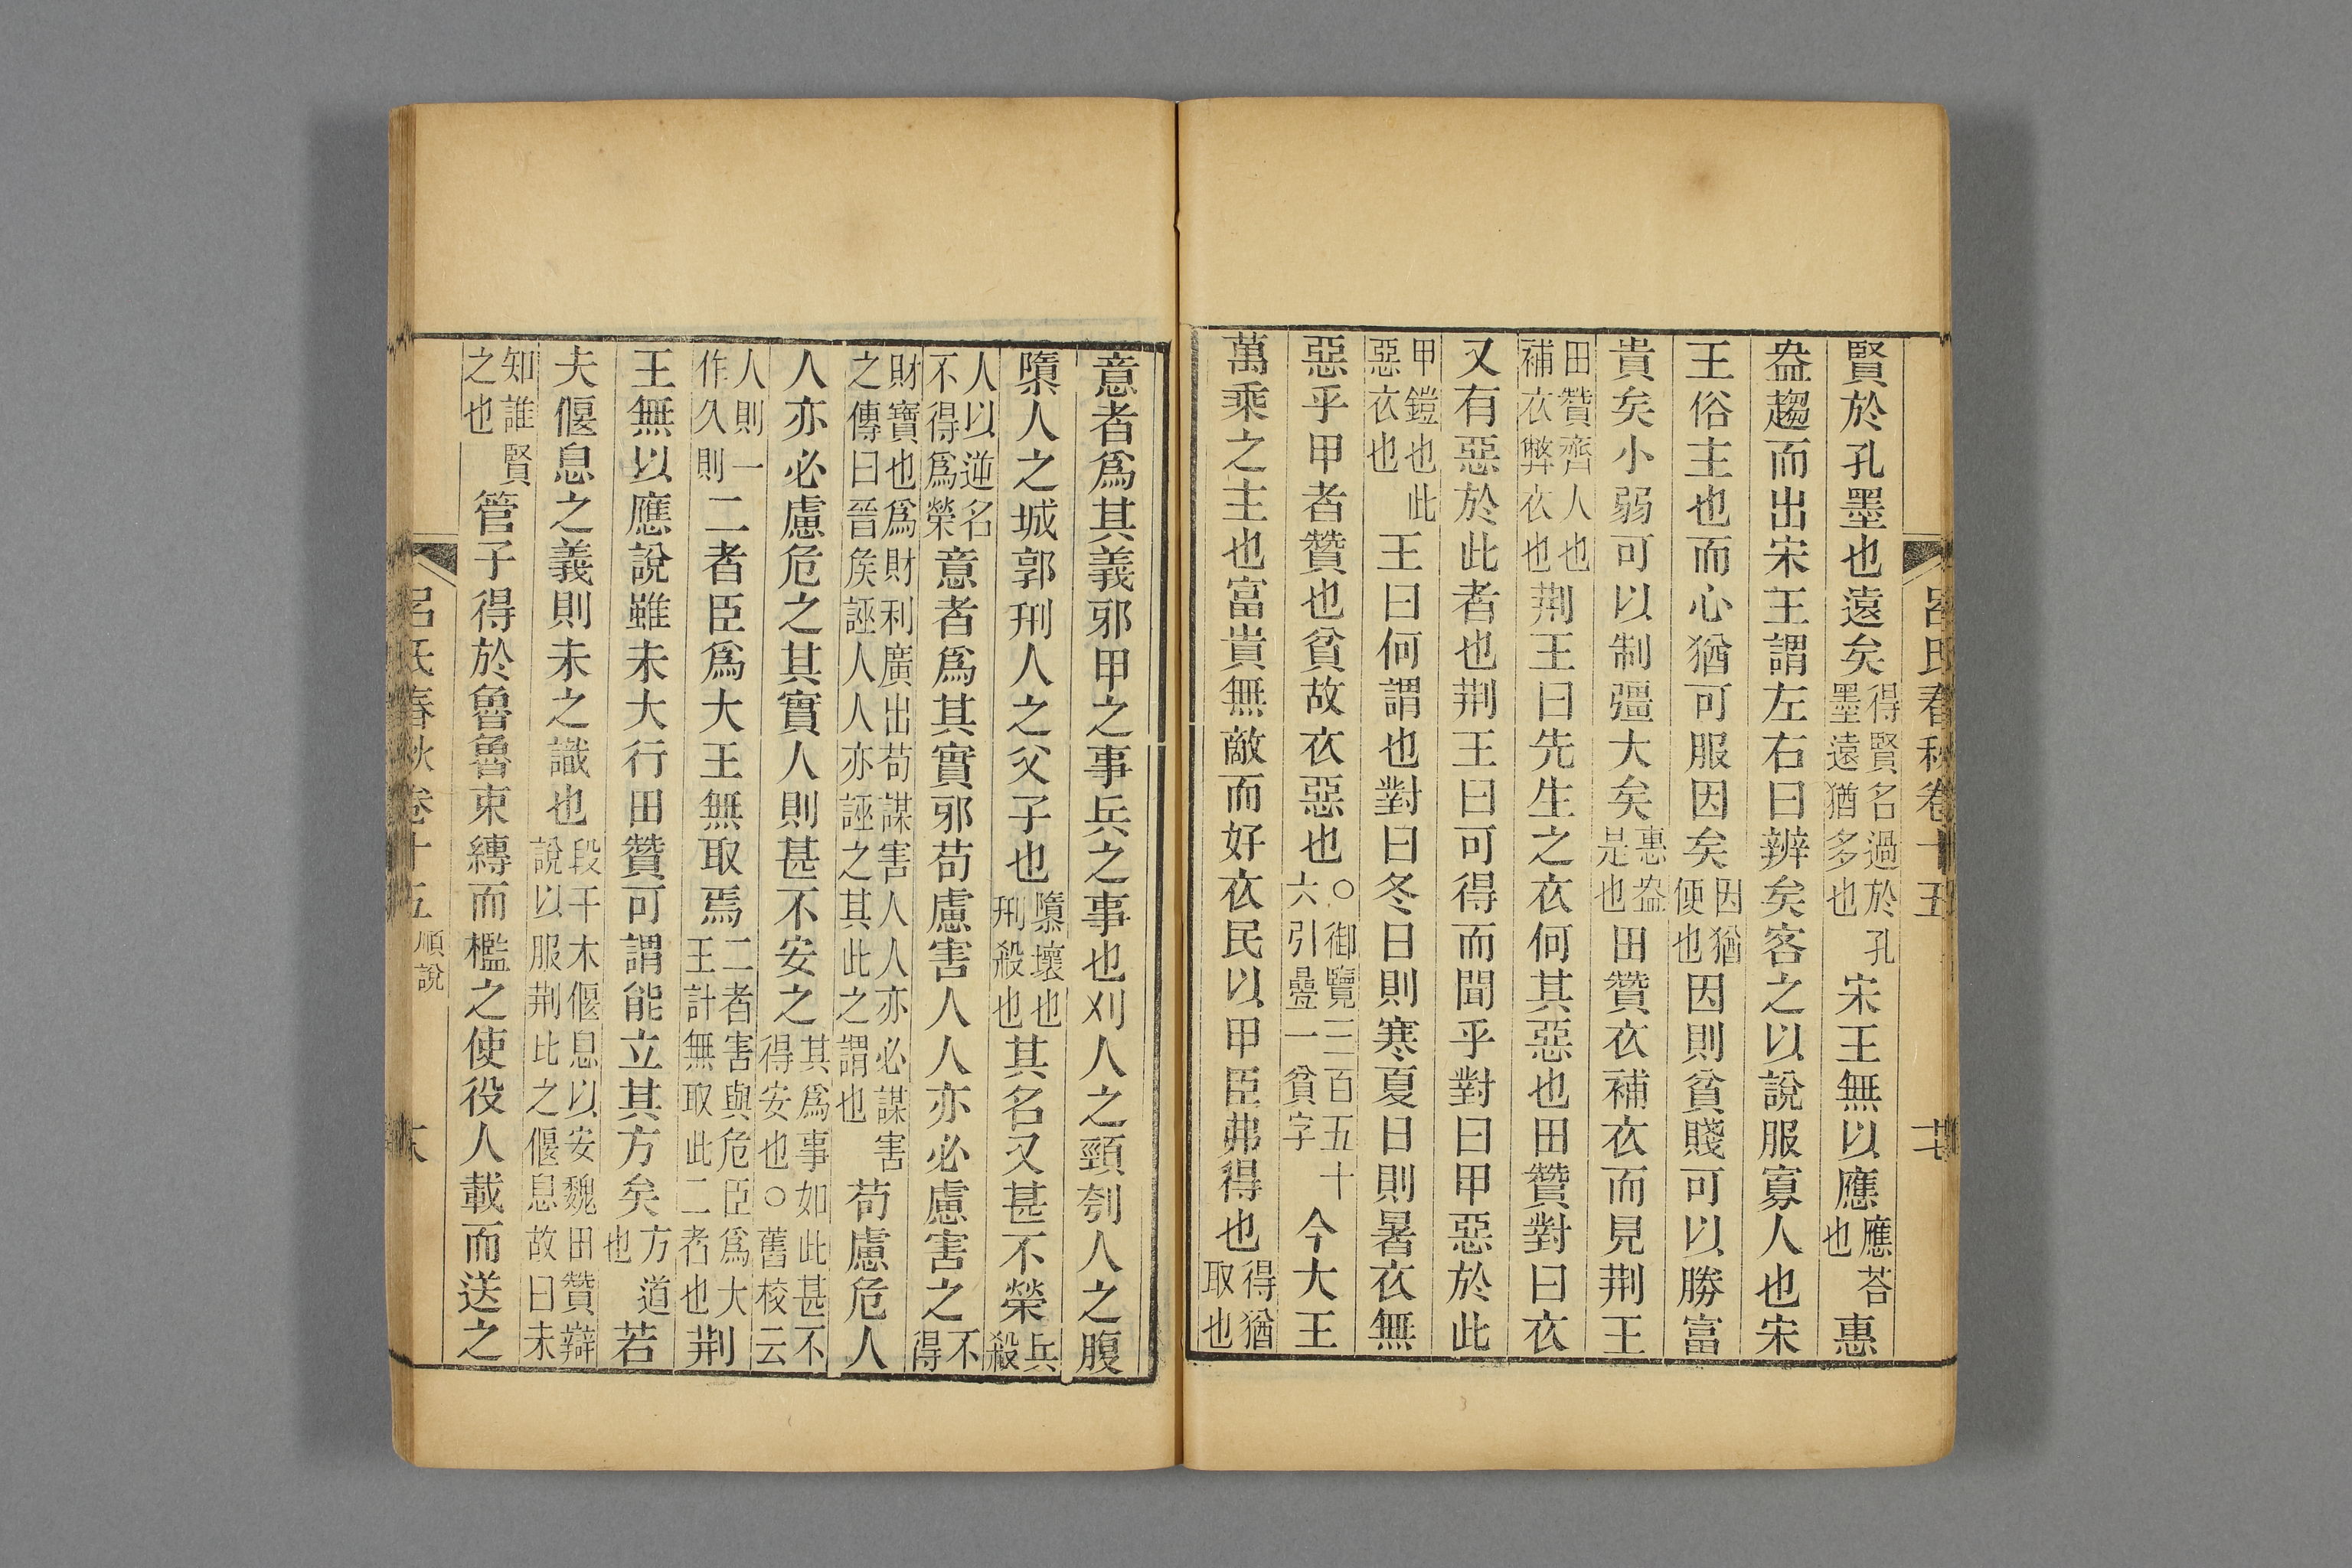 呂氏春秋卷十五 七
賢於孔墨也遠矣得賢名過於孔墨遠猶多也宋王無以應應荅也惠
盎趨而出宋王謂左右曰辨矣客之以說服寡人也宋
王俗主也而心猶可服因矣因猶便也因則貧賤可以勝富
貴矣小弱可以制彊大矣惠盎是也田贊衣補衣而見荆王
田贊齊人也補衣弊衣也荆王曰先生之衣何其惡也田贊對曰衣
又有惡於此者也荆王曰可得而聞乎對曰甲惡於此
甲鎧也此惡衣也王曰何謂也對曰冬日則寒夏日則暑衣無
惡乎甲者贊也貧故衣惡也○御覽三百五十六引疊一貧字今大王
萬乘之主也富貴無敵而好衣民以甲臣弗得也得猶取也
意者爲其義邪甲之事兵之事也刈人之頸刳人之腹
隳人之城郭刑人之父子也隳壞也刑殺也其名又甚不榮兵殺
人以逆名不得爲榮意者爲其實邪苟慮害人人亦必慮害之不得
財寶也爲財利廣出苟謀害人人亦必謀害之傳曰晉矦誣人人亦誣之其此之謂也苟慮危人
人亦必慮危之其實人則甚不安之其爲事如此甚不得安也○舊校云
人則一作久則二者臣爲大王無取焉二者害與危臣爲大王計無取此二者也荆
王無以應說雖未大行田贊可謂能立其方矣方道也若
夫偃息之義則未之識也段干木偃息以安魏田贊辯說以服荆比之偃息故曰未
知誰賢之也管子得於魯魯束縛而檻之使役人載而送之
呂氏春秋卷十五 順說